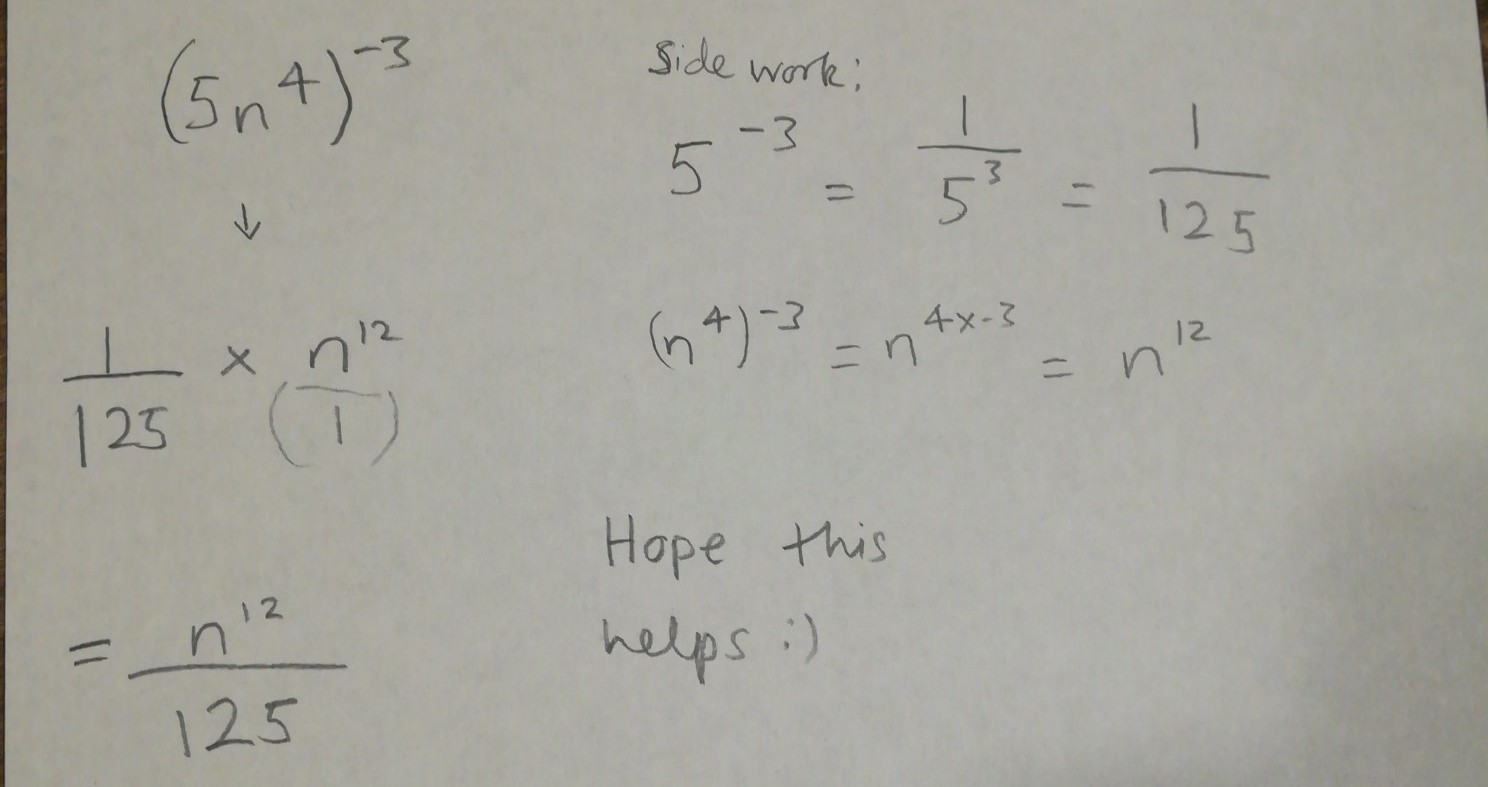 (5n⁴)⁻³
↓
1/125 × n¹²/(1)
= n¹²/125
Side work:
5⁻³ = 1/5³ = 1/125
(n⁴)⁻³ = n⁴ˣ⁻³ = n¹²
Hope this
helps :)